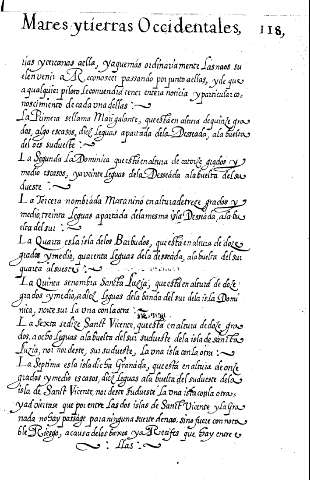 Mares ytierras Occidentales, 118,
tias y cercanas aella, yaquemas ordinariamente Las naos su
elen venir a Reconoscer passando por junto aellas, y de que
a qualquier piloto le combendria tener entera noticia y particular co
noscimiento de cada una dellas:
La Primera sellama Marigalante, questa en altura de quinze gra
dos, algo escasos, diez Leguas apartada dela Desseada, ala buelta
del oes sudueste:
La Segunda La Dominica questa en altura de catorze grados y
medio escasos, ya veinte Leguas dela Desseada ala buelta del su
dueste:
La Tercera nombrada Matanino en altura de treze grados y
medio, treinta Leguas apartada dela mesma ysla Desseada, ala bu
elta del sur:
La Quarta es la isla delos Barbudos, que esta en altura de doze
grados y medio, quarenta Leguas dela desseada, ala buelta del sur
quarta al sueste:
La Quinta se nombra Sancta Luzia, questa en altura de doze
grados y medio, a diez Leguas dela banda del sur dela isla Domi
nica, norte sur La una con la otra:
La Sexta se dize Sanct Vicente, que esta en altura de doze gra
dos, a ocho Leguas ala buelta del sur sudueste dela isla de sancta
Luzia, nor nordeste, sur sudueste, La una isla con la otra:
La Septima es la isla dicha Granada, que esta en altura de onze
grados y medio escasos, diez Leguas ala buelta del sudueste dela
isla de Sanct Vicente, nordeste sudueste La una isla con la otra,
y ad viertase que por entre Las dos islas de Sanct Vicente y la Gra
nada no hay passage para ninguna suerte de nao, sino fuere con nota
ble Riesgo, a causa delos baxos y a Recifes que hay entre
Ellas: